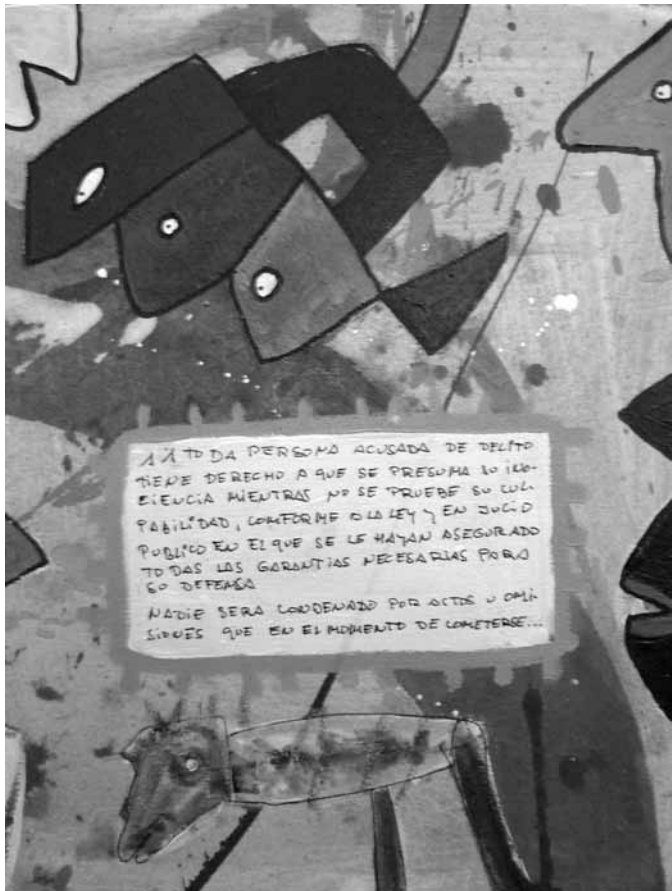 11 TODA PERSONA ACUSADA DE DELITO
TIENE DERECHO A QUE SE PRESUMA SU INO-
CIENCIA MIENTRAS NO SE PRUEBE SU CUL-
PABILIDAD, CONFORME A LA LEY Y EN JUCIO
PUBLICO EN EL QUE SE LE HAYAN ASEGURADO
TODAS LAS GARANTIAS NECESARIAS PARA
SU DEFENSA
NADIE SERA CONDENADO POR ACTOS U OMI-
SIONES QUE EN EL MOMENTO DE COMETERSE...